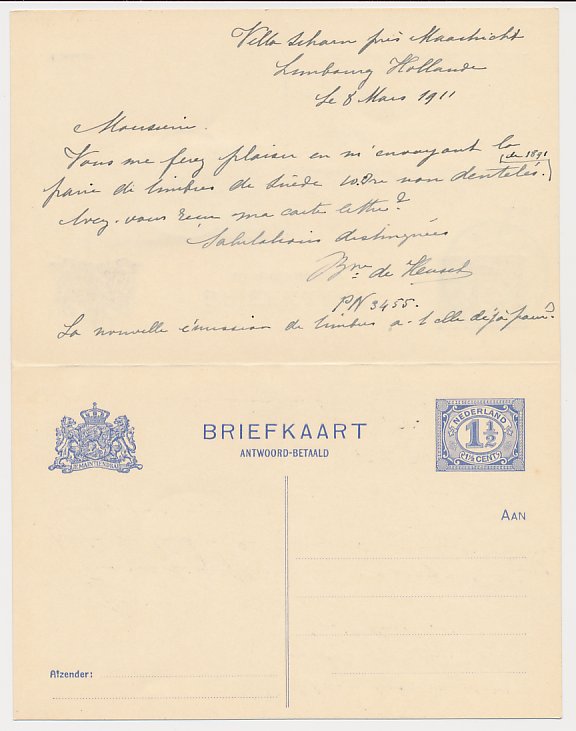 Villa Scharn près Maastricht
Limbourg Hollande
Le 8 Mars 1911
Monsieur.
Vous me ferez plaisir en m'envoyant la
(de 1891)
paire de timbres de Suède 10 Ore non dentelés.
Avez-vous reçu ma carte lettre?
Salutations distinguées
Bne. de Heusch
PN 3455.
La nouvelle émission de timbres a-t-elle déjà paru?
BRIEFKAART
ANTWOORD-BETAALD
JE MAINTIENDRAI
NEDERLAND
1½
1½ CENT
AAN
Afzender: